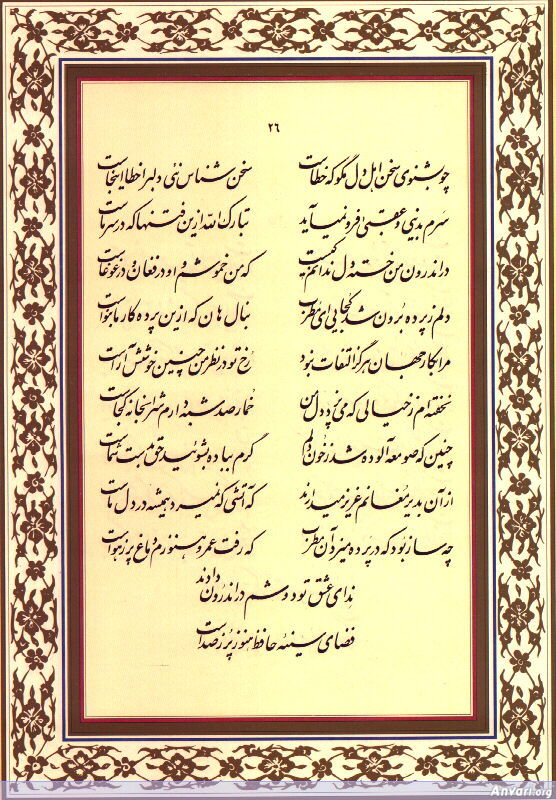 ٢٦
چو بشنوی سخن اهل دل مگو که خطاست سخن شناس نئی دلبرا خطا اینجاست
سرم بدنیی و عقبی فرو نمیآید تبارک الله ازین فتنها که در سر ماست
در اندرون من خسته دل ندانم کیست که من خموشم و او در فغان و در غوغاست
دلم ز پرده برون شد کجایی ای مطرب بنال هان که ازین پرده کار ما بنواست
مرا بکار جهان هرگز التفات نبود رخ تو در نظر من چنین خوشش آراست
نخفته‌ام ز خیالی که می‌پزد دل من خمار صد شبه دارم شرابخانه کجاست
چنین که صومعه آلوده شد ز خون دلم گرم بباده بشوئید حق بدست شماست
از آن بدیر مغانم عزیز میدارند که آتشی که نمیرد همیشه در دل ماست
چه ساز بود که در پرده میزد آن مطرب که رفت عمر و هنوزم دماغ پر ز هواست
ندای عشق تو دوشم در اندرون دادند
فضای سینهٔ حافظ هنوز پر ز صداست
Anvari.org